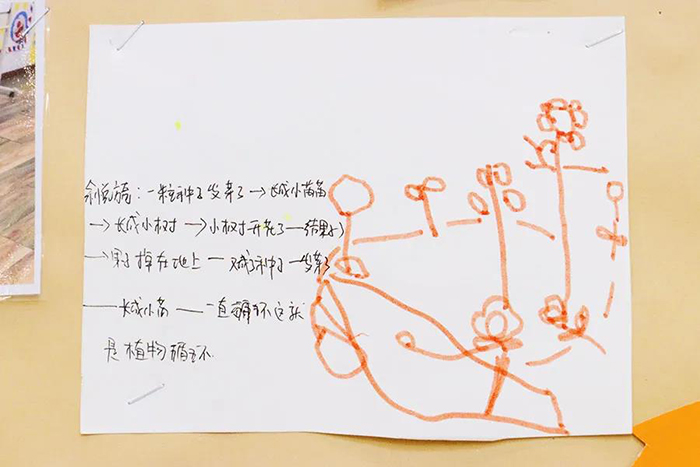 俞悦：一粒种子发芽了→长成小苗苗
→长成小树→小树开花了—结果了
→果子掉在地上—变成了种子—发芽了
——长成小苗——一直循环这就
是植物循环